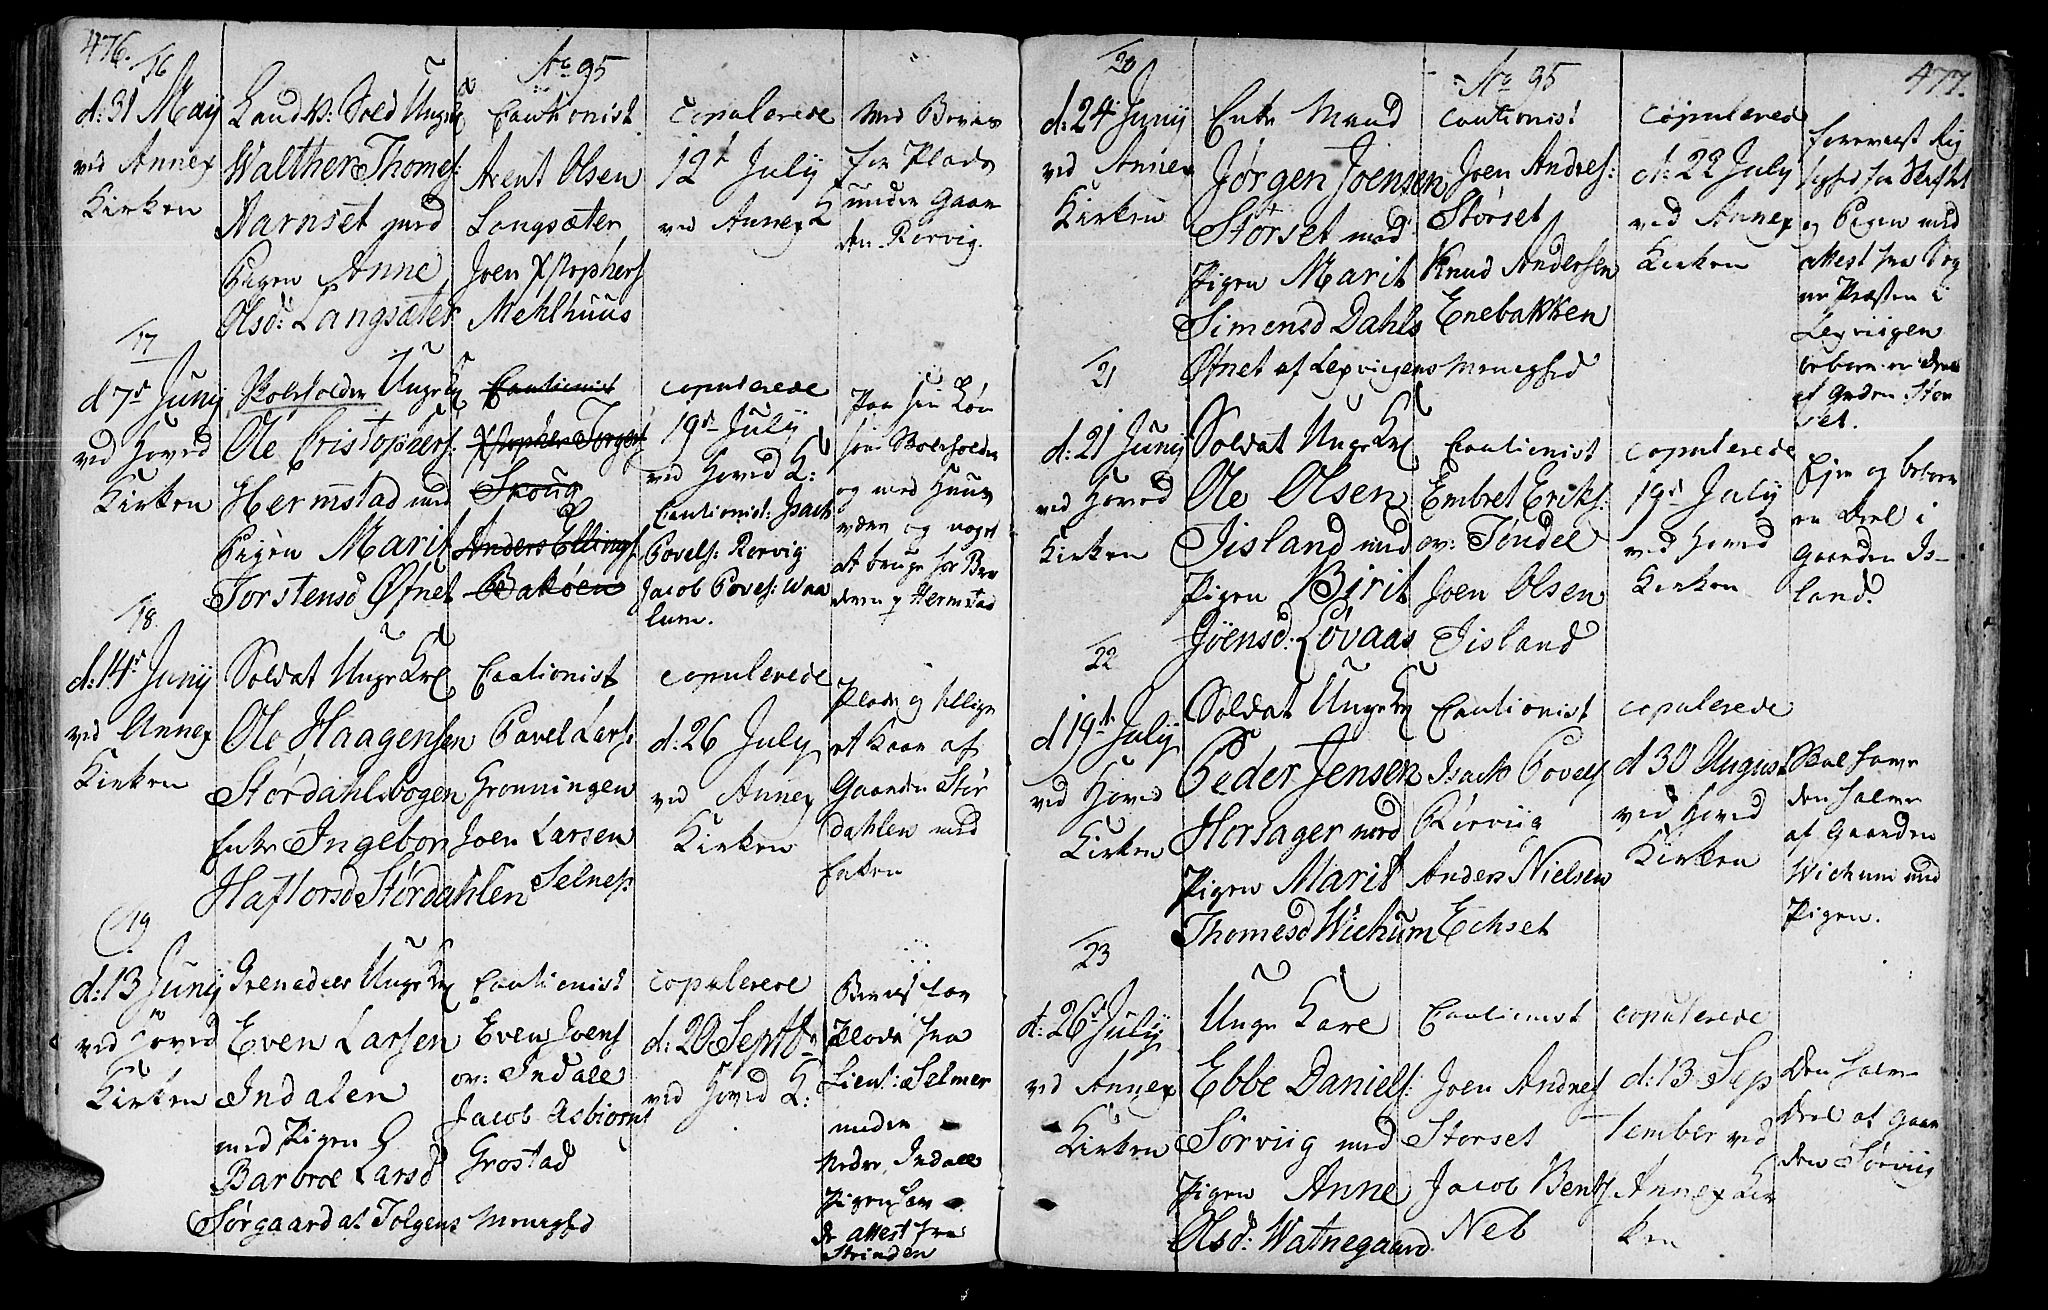 476.
Ao 95
16
d: 31 May
ved Annex
Kirken
Land V: Sold Unge K
Walther Thomes:
Narnset med
Pigen Anne
Olsd: Langsæter
Cautionist
Arent Olsen
Langsæter
Joen Xstophers
Mehlhuus
copulerede
12t July
ved Annex K
med Beviis
for Plads
under Gaar
den Rorvig.
17
d 7de Juny
ved Hoved
Kirken
Skoleholder Unge K
Ole Cristophers:
Hermstad med
Pigen Marit
Torstensd Øfnet
Cautionist
Xstopher Torgers
Skoug
Anders Ellings
Bakøen
copulerede
19de July
ved Hoved K:
Cautionist: Isach
Povels: Rorvig
Jacob Povels: Waa
lum.
Paa sin Løn
som Skoleholder
og med Huus
være og noget
at bruge hos Bro
deren p Hermstad
18.
d: 14de Juny
ved Annex
Kirken
Soldat Unge Krl
Ole Haagensen
Stordahlsvogen
Enke Ingebor
Haftorsd Størdahlen
Cautionist
Pavel Lars:
Grønningen
Joen Larsen
Selness
copulerede
d: 26 July
ved Annex
Kirken
Plads og tillige
et Kaar af
Gaarden Stør
dahlen med
Enken
19
d: 13 Juny
ved Hoved
Kirken
Grenadeer Unge Krl
Even Larsen
Indalen
med Pigen
Barbroe Larsd
Sørgaard af Tolgens Menighd
Cautionist
Even Joens
ov: Indall
Jacob Asbiorns
Grostad
copulerede
d: 20 Septbr
ved Hoved K:
Beviis for
Plads fra
Lieut: Selmer
under
Nedre Indall
Pigen har
att attest fra
Strinden
477.
Ao 95
20
d: 24 Juny
ved Annex
Kirken
Enke Mand
Jørgen Joensen
Størset med
Pigen Marit
Simensd Dahls
Øfnet af Lexvigens Menighed
Cautionist
Joen Andres:
Størset
Knud Andersen
Enebakken
copulerede
d: 22 July
ved Annex
Kirken
og Pigen med
attest fra Sog
ne Præsten i
Lexviigen
beboer en Deel
af Gaarden Stor
set.
21
d: 21 Juny
ved Hoved
Kirken
Soldat Unge Krl
Ole Olsen
Iisland med
Pigen Birit
Jøensd: Løvaas
Cautionist
Embret Eriks:
ov: Tøndel
Joen Olsen
Iisland
copulerede
19de July
ved Hoved
Kirken
Ejer og beboer
en Deel i
Gaarden Is-
land.
22
d 19de July
ved Hoved
Kirken
Soldat Unge K
Peder Jensen
Horsager med
Pigen Marit
Thomesd Wichum
Cautionist
Isach Povels
Rørviig
Anders Nielsen
Echset
copulerede
d 30 August
ved Hoved
Kirken
Skal have
den halve
af Gaarden
Wichum med
Pigen.
23
d: 26de July
ved Annex
Kirken
Unge Karl
Ebbe Daniels:
Sørviig med
Pigen Anne
Olsd: Watnegaard.
Cautionist
Joen Andres
Storset
Jacob Bents
Neb
copulerede
d: 13 Sep
tember ved
Annex Kir
ken
Den halve
Deel af Gaar
den Sørviig